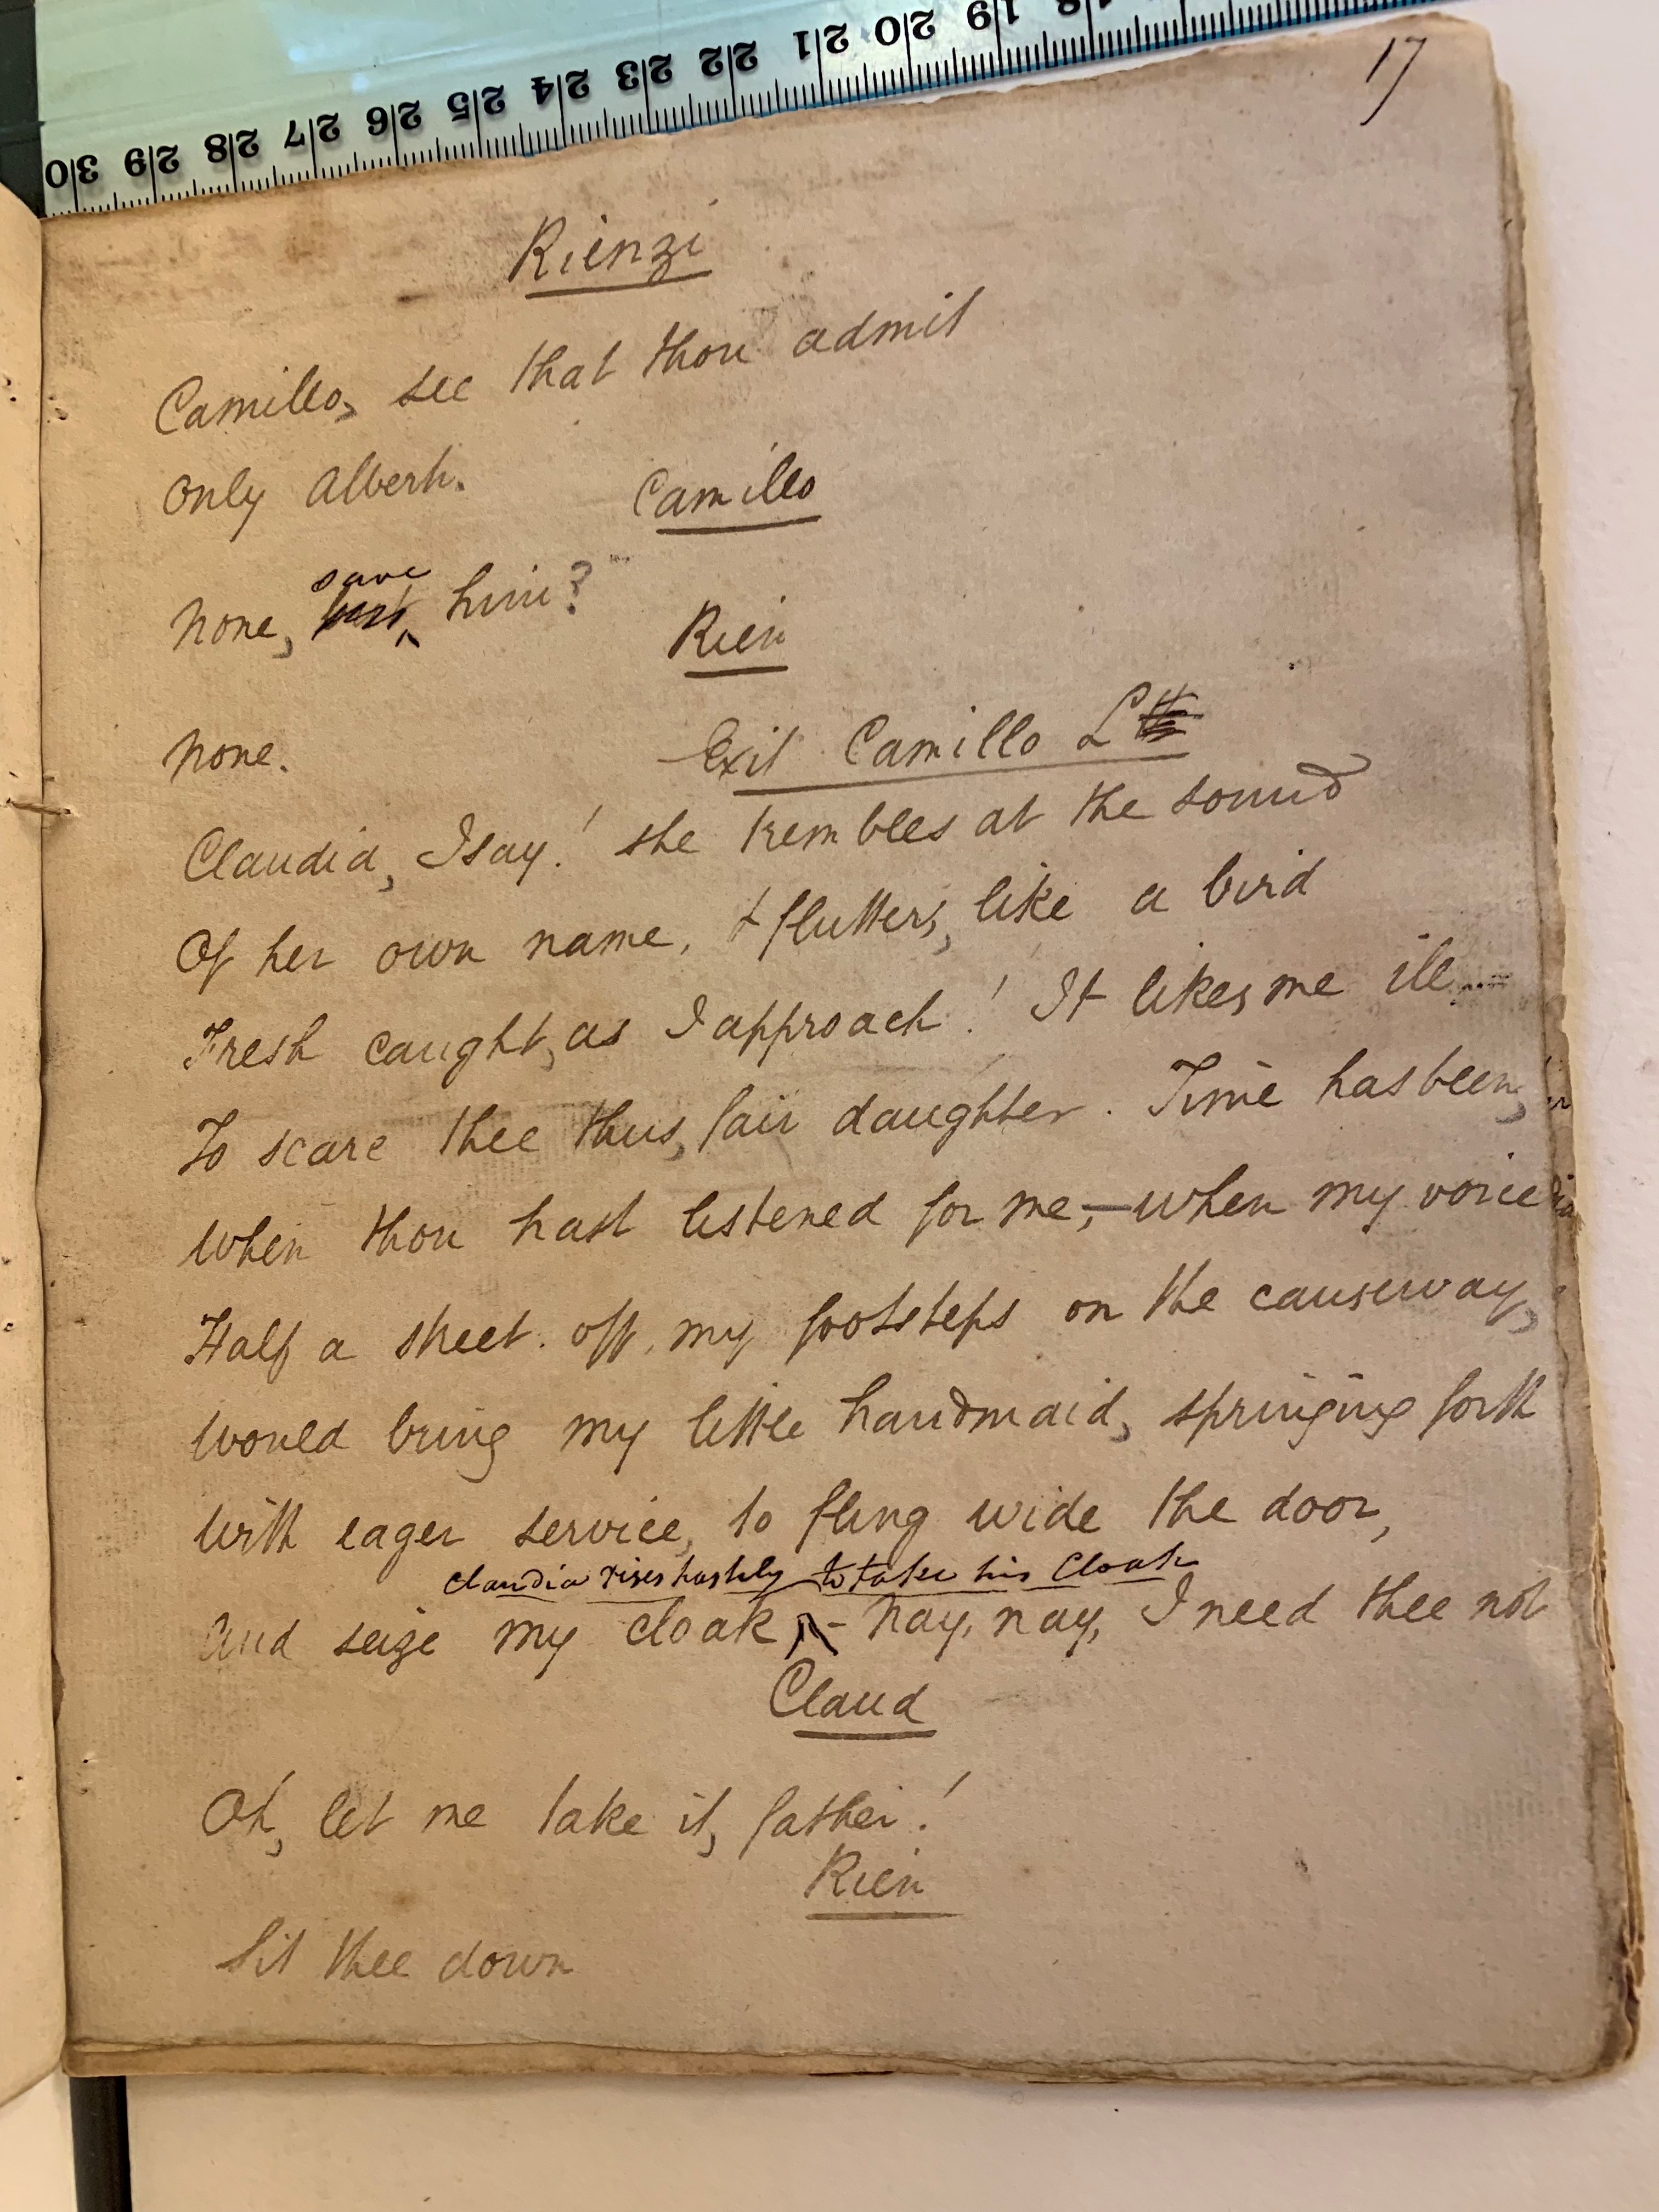 30 29 28 27 26 25 24 23 22 21 20 19 18
17
Rienzi
Camillo, see that thou admit
Only Alberti.
Camillo
None, save him?
Rien
None.
Exit Camillo L
Claudia, I say! she trembles at the sound
Of her own name, & flutters, like a bird
Fresh caught, as I approach! It likes me ill
To scare thee thus, fair daughter. Time has been,
When thou hast listened for me,—when my voice
Half a street off, my footsteps on the causeway,
Would bring my little handmaid, springing forth
With eager service, to fling wide the door,
Claudia rises hastily to take his Cloak
And seize my cloak,- Nay, nay, I need thee not
Claud
Oh, let me take it, father!
Rien
Sit thee down